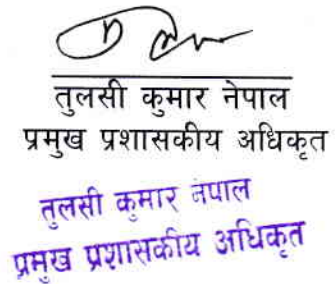 तुलसी कुमार नेपाल
प्रमुख प्रशासकीय अधिकृत
तुलसी कुमार नेपाल
प्रमुख प्रशासकीय अधिकृत